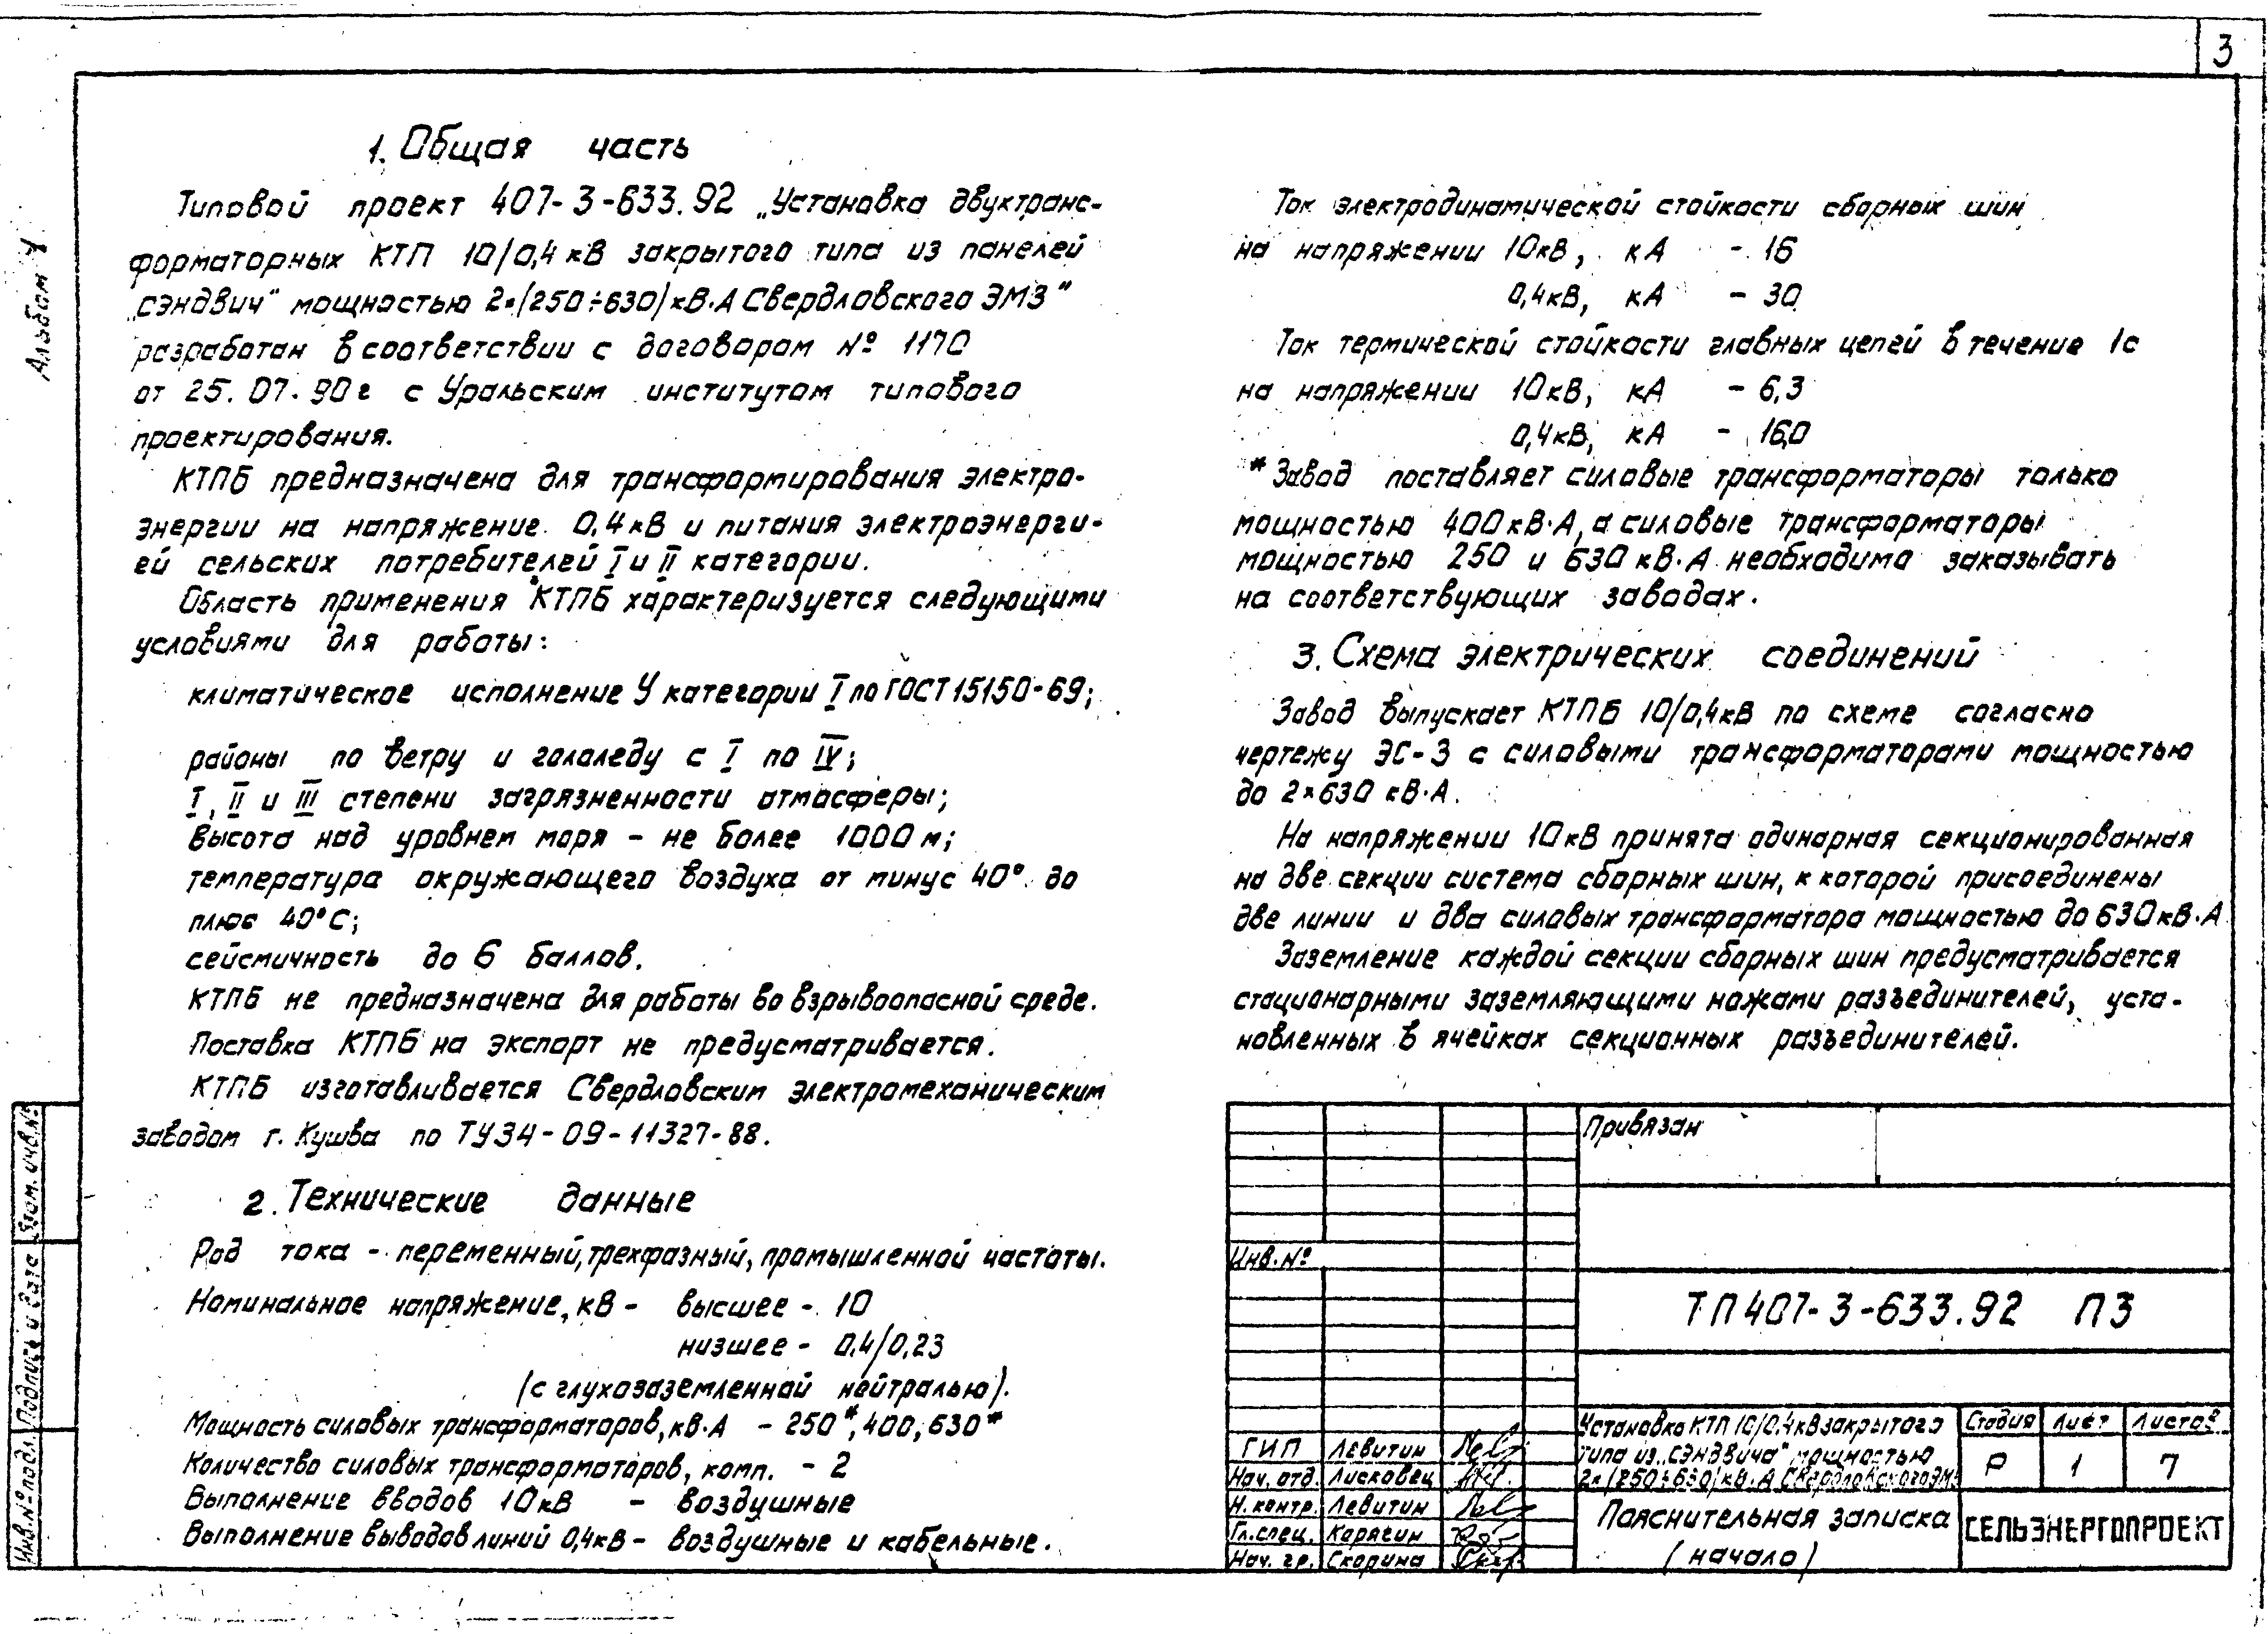 3
Альбом 4
1. Общая часть
Типовой проект 407-3-633.92 „Установка двухтранс-
форматорных КТП 10/0,4 кВ закрытого типа из панелей
„сэндвич" мощностью 2×(250÷630) кВ·А Свердловского ЭМЗ"
разработан в соответствии с договором № 1170
от 25.07.90г с Уральским институтом типового
проектирования.
КТПБ предназначена для трансформирования электро-
энергии на напряжение 0,4 кВ и питания электроэнерги-
ей сельских потребителей I и II категории.
Область применения КТПБ характеризуется следующими
условиями для работы:
климатическое исполнение У категории I по ГОСТ 15150-69;
районы по ветру и гололеду с I по IV;
I, II и III степени загрязненности атмосферы;
высота над уровнем моря - не более 1000 м;
температура окружающего воздуха от минус 40° до
плюс 40°С;
сейсмичность до 6 баллов.
КТПБ не предназначена для работы во взрывоопасной среде.
Поставка КТПБ на экспорт не предусматривается.
КТПБ изготавливается Свердловским электромеханическим
заводом г. Кушва по ТУ34-09-11327-88.
2. Технические данные
Род тока - переменный, трехфазный, промышленной частоты.
Номинальное напряжение, кВ - высшее - 10
низшее - 0,4/0,23
(с глухозаземленной нейтралью).
Мощность силовых трансформаторов, кВ·А - 250*, 400, 630*
Количество силовых трансформаторов, комп. - 2
Выполнение вводов 10 кВ - воздушные
Выполнение выводов линий 0,4кВ - воздушные и кабельные.
Ток электродинамической стойкости сборных шин
на напряжении 10кВ, кА - 16
0,4кВ, кА - 30
Ток термической стойкости главных цепей в течение 1с
на напряжении 10кВ, кА - 6,3
0,4кВ, кА - 16,0
* Завод поставляет силовые трансформаторы только
мощностью 400 кВ·А, а силовые трансформаторы
мощностью 250 и 630 кВ·А необходимо заказывать
на соответствующих заводах.
3. Схема электрических соединений
Завод выпускает КТПБ 10/0,4кВ по схеме согласно
чертежу ЭС-3 с силовыми трансформаторами мощностью
до 2×630 кВ·А.
На напряжении 10 кВ принята одинарная секционированная
на две секции система сборных шин, к которой присоединены
две линии и два силовых трансформатора мощностью до 630 кВ·А
Заземление каждой секции сборных шин предусматривается
стационарными заземляющими ножами разъединителей, уста-
новленных в ячейках секционных разъединителей.
Привязан
Инв. №
ТП 407-3-633.92 ПЗ
Установка КТП 10/0,4кВ закрытого
типа из „сэндвича" мощностью
2×(250÷630) кВ·А Свердловского ЭМЗ
Стадия Лист Листов
Р 1 7
ГИП Левитин
Нач. отд. Лисковец
Н. контр. Левитин
Гл. спец. Карягин
Нач. гр. Скорина
Пояснительная записка
(начало)
СЕЛЬЭНЕРГОПРОЕКТ
Взам. инв. №
Подпись и дата
Инв. № подл.